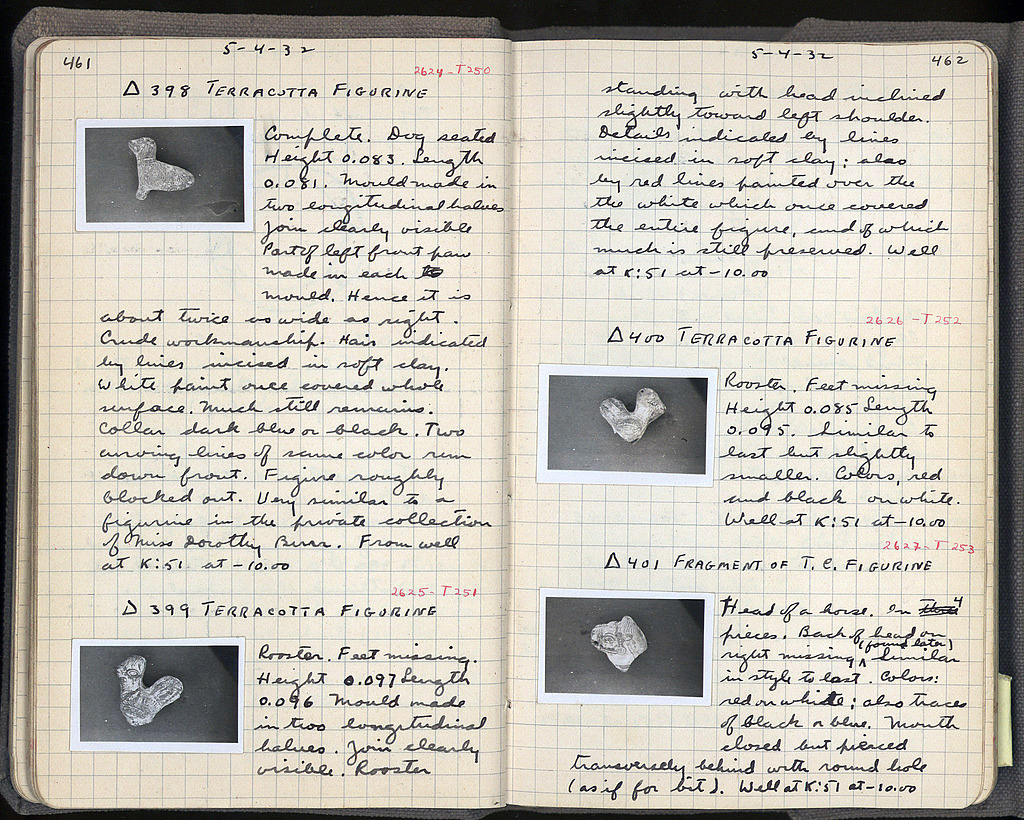 461
5-4-32
2624-T250
Δ 398 TERRACOTTA FIGURINE
Complete. Dog seated
Height 0.083. Length
0.081. Mould made in
two longitudinal halves
join clearly visible
Part of left front paw
made in each to
mould. Hence it is
about twice as wide as right.
Crude workmanship. Hair indicated
by lines incised in soft clay.
White paint once covered whole
surface. Much still remains.
Collar dark blue or black. Two
curving lines of same color run
down front. Figure roughly
blocked out. Very similar to a
figurine in the private collection
of Miss Dorothy Burr. From well
at K:51 at -10.00
2625-T251
Δ 399 TERRACOTTA FIGURINE
Rooster. Feet missing.
Height 0.097 Length
0.096 Mould made
in two longitudinal
halves. Join clearly
visible. Rooster
5-4-32
462
standing with head inclined
slightly toward left shoulder.
Details indicated by lines
incised in soft clay; also
by red lines painted over the
the white which once covered
the entire figure, and of which
much is still preserved. Well
at K:51 at -10.00
2626-T252
Δ 400 TERRACOTTA FIGURINE
Rooster. Feet missing
Height 0.085 Length
0.095. Similar to
last but slightly
smaller. Colors, red
and black on white.
Well at K:51 at -10.00
2627-T253
Δ 401 FRAGMENT OF T.C. FIGURINE
Head of a horse. In three 4
pieces. Back of head on
right missing (found later) Similar
in style to last. Colors:
red on white; also traces
of black or blue. Mouth
closed but pierced
transversely behind with round hole
(as if for bit). Well at K:51 at -10.00